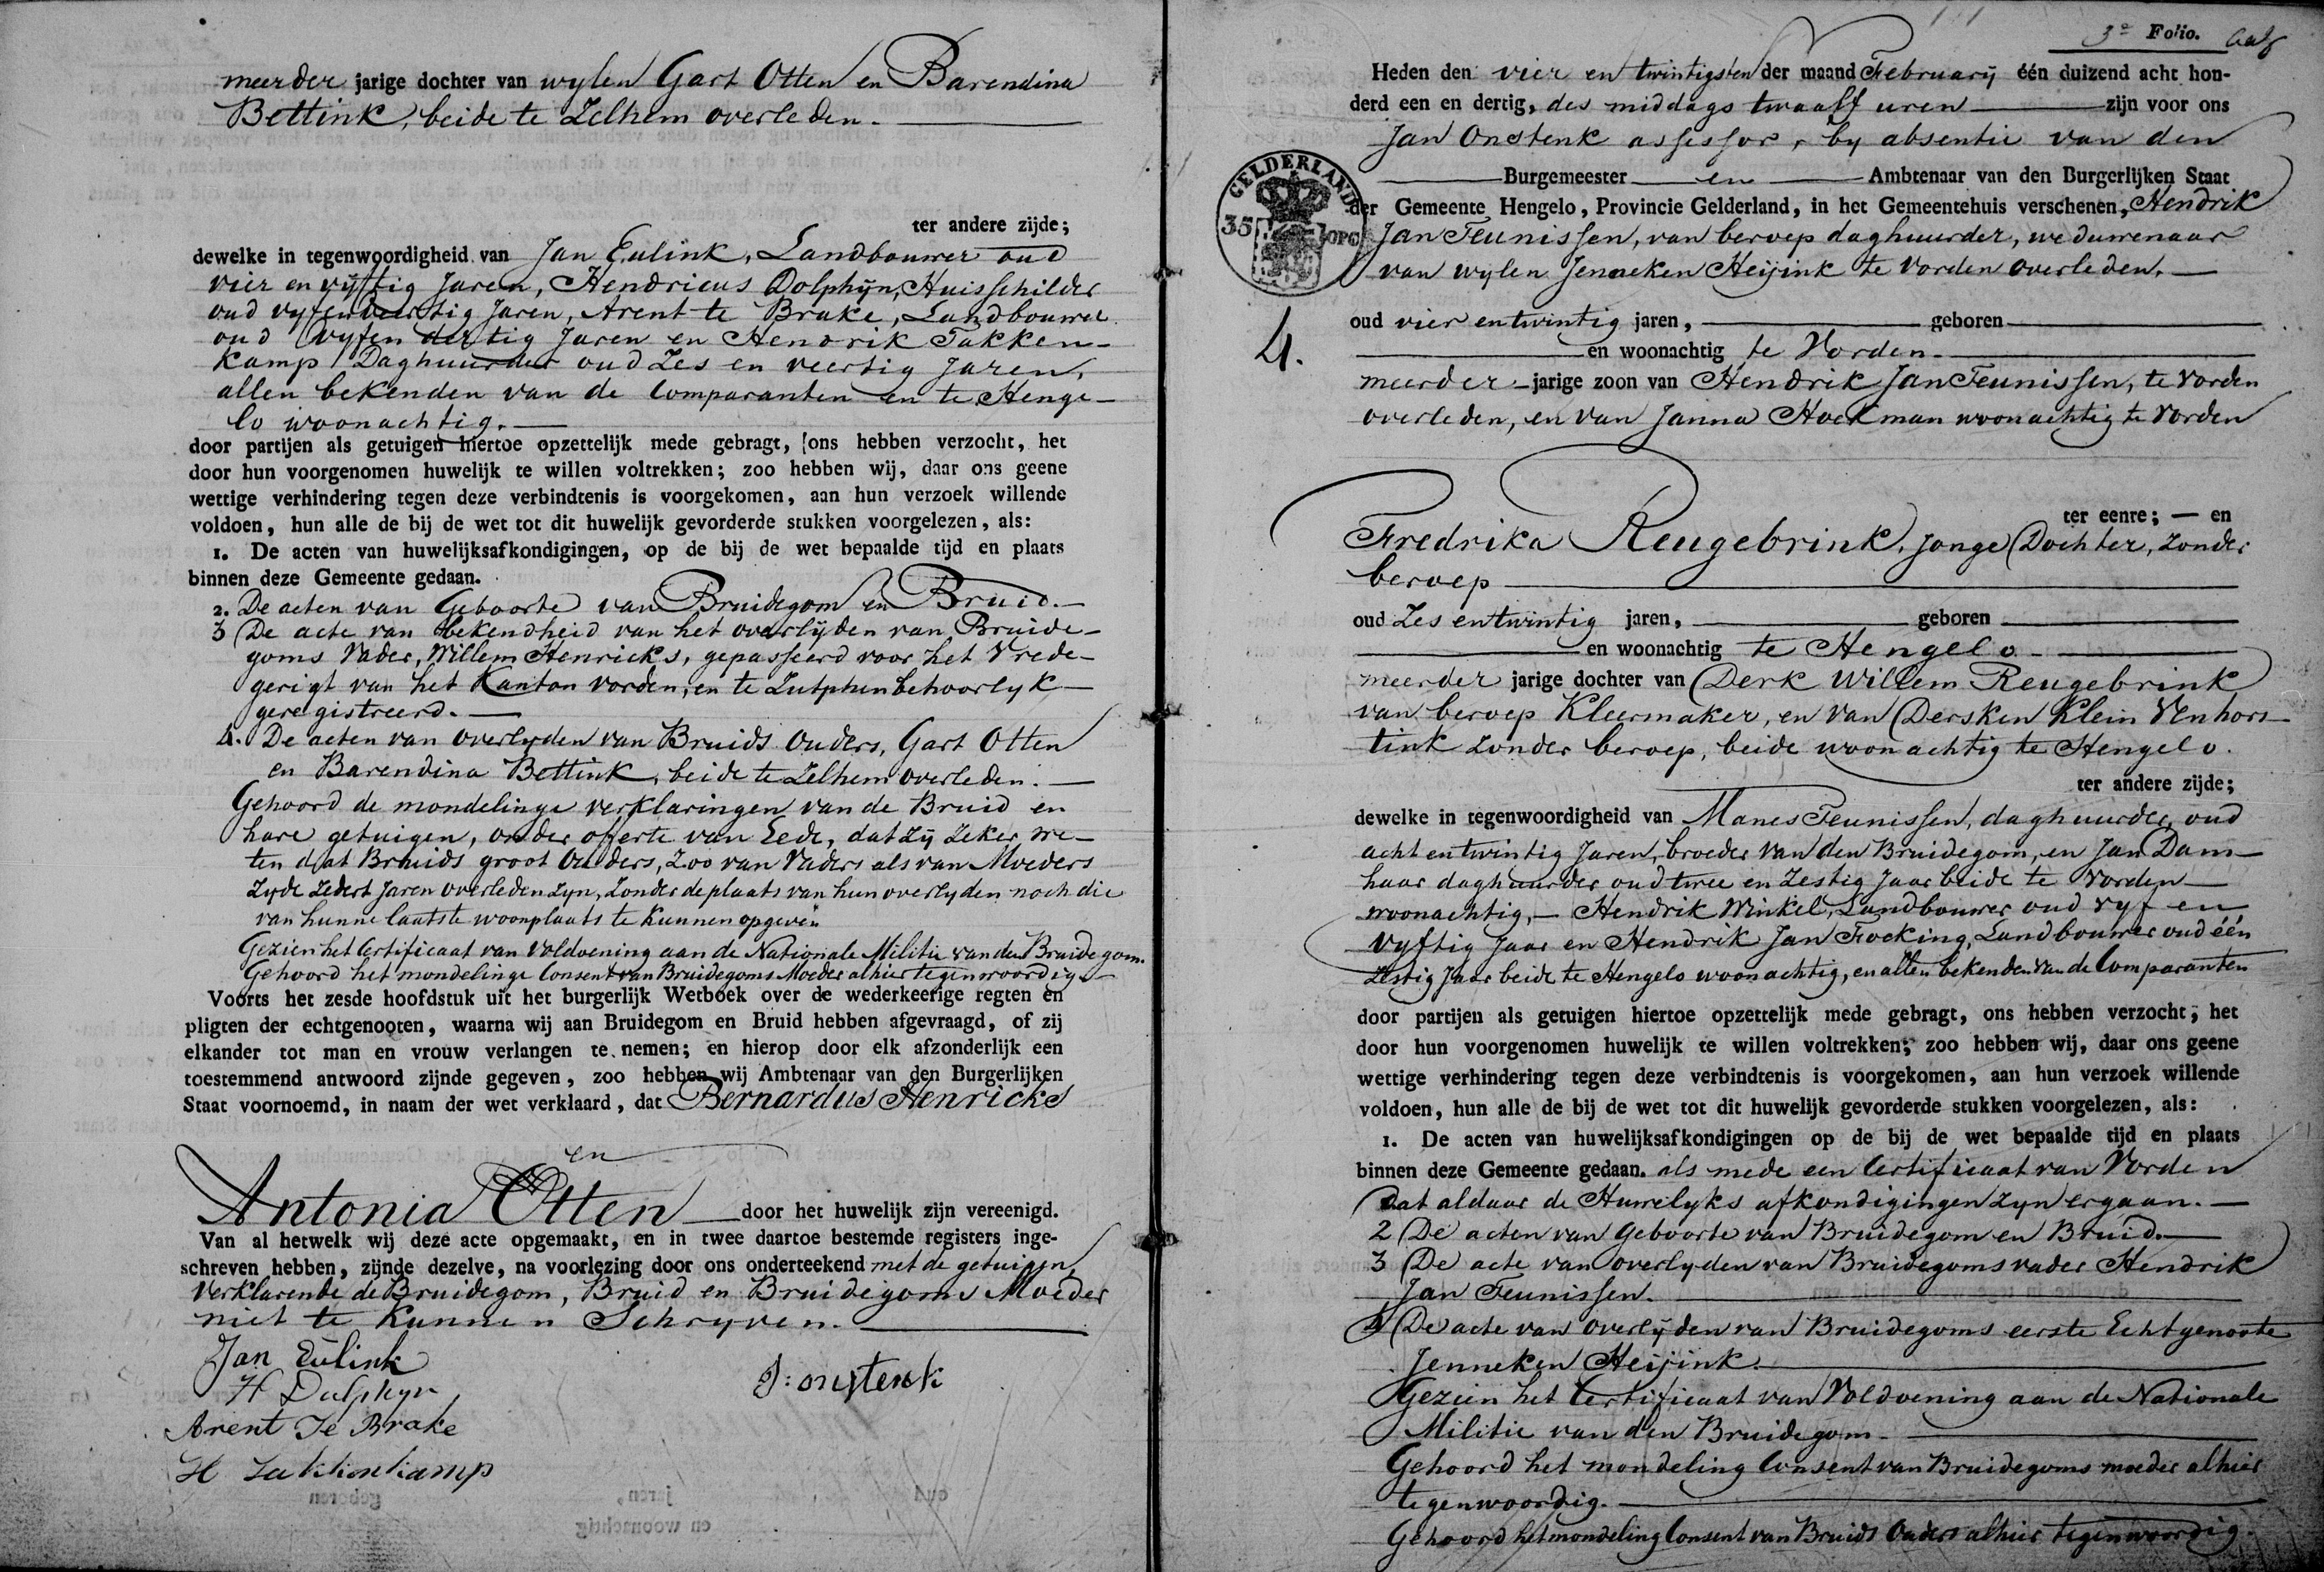 meerder jarige dochter van wylen Gart Otten en Barendina
Bettink, beide te Zelhem overleden.
ter andere zijde;
dewelke in tegenwoordigheid van Jan Eulink, Landbouwer oud
vier en vyftig Jaren, Hendricus Dolphyn, Huisschilder
oud vyfenveertig Jaren, Arent te Brake, Landbouwer
oud vyfen dertig Jaren en Hendrik Takken-
kamp Daghuurder oud Zes en veertig Jaren,
allen bekenden van de Comparanten en te Henge-
lo woonachtig.
door partijen als getuigen hiertoe opzettelijk mede gebragt, ons hebben verzocht, het
door hun voorgenomen huwelijk te willen voltrekken; zoo hebben wij, daar ons geene
wettige verhindering tegen deze verbindtenis is voorgekomen, aan hun verzoek willende
voldoen, hun alle de bij de wet tot dit huwelijk gevorderde stukken voorgelezen, als:
1. De acten van huwelijksafkondigingen, op de bij de wet bepaalde tijd en plaats
binnen deze Gemeente gedaan.
2. De acten van Geboorte van Bruidegom en Bruid.
3 De acte van bekendheid van het overlyden van Bruide-
goms Vader, Willem Henricks, gepasseerd voor het Vrede-
gerigt van het Kanton Vorden, en te Zutphen behoorlyk
geregistreerd.
4. De acten van overlyden van Bruids Ouders, Gart Otten
en Barendina Bettink, beide te Zelhem overleden.
Gehoord de mondelinge verklaringen van de Bruid en
hare getuigen, onder offerte van Eede, dat zy zeker we-
ten dat Bruids groot Ouders, zoo van Vaders als van Moeders
zyde zedert Jaren overleden zyn, zonder de plaats van hun overlyden noch die
van hunne laatste woonplaats te kunnen opgeven
Gezien het Certificaat van Voldoening aan de Nationale Militie van den Bruidegom.
Gehoord het mondelinge Consent van Bruidegoms Moeder alhier tegenwoordig
Voorts het zesde hoofdstuk uit het burgerlijk Wetboek over de wederkeerige regten en
pligten der echtgenooten, waarna wij aan Bruidegom en Bruid hebben afgevraagd, of zij
elkander tot man en vrouw verlangen te nemen; en hierop door elk afzonderlijk een
toestemmend antwoord zijnde gegeven, zoo hebben wij Ambtenaar van den Burgerlijken
Staat voornoemd, in naam der wet verklaard, dat Bernardus Henricks
en
Antonia Otten door het huwelijk zijn vereenigd.
Van al hetwelk wij deze acte opgemaakt, en in twee daartoe bestemde registers inge-
schreven hebben, zijnde dezelve, na voorlezing door ons onderteekend met de getuigen,
verklarende de Bruidegom, Bruid en Bruidegoms Moeder
niet te kunnen Schryven.
Jan Eulink
H Dulphyn
J: onstenk
Arent Te Brake
H Takkenkamp
3e Folio.
Heden den vier en twintigsten der maand February één duizend acht hon-
derd een en dertig, des middags twaalf uren zijn voor ons
Jan Onstenk assessor, by absentie van den
Burgemeester en Ambtenaar van den Burgerlijken Staat
der Gemeente Hengelo, Provincie Gelderland, in het Gemeentehuis verschenen, Hendrik
Jan Teunissen, van beroep daghuurder, weduwenaar
van wylen Jenneken Heijink te Vorden overleden.
GELDERLAND
35 OPC
4.
oud vier entwintig jaren, geboren
en woonachtig te Vorden.
meerder jarige zoon van Hendrik Jan Teunissen, te Vorden
overleden, en van Janna Hoekman woonachtig te Vorden
ter eenre; — en
Fredrika Reugebrink, Jonge Dochter, zonder
beroep
oud Zes entwintig jaren, geboren
en woonachtig te Hengelo
meerder jarige dochter van Derk Willem Reugebrink
van beroep Kleermaker, en van Dersken Klein Venhors-
tink zonder beroep, beide woonachtig te Hengelo.
ter andere zijde;
dewelke in tegenwoordigheid van Manes Teunissen, daghuurder, oud
acht entwintig Jaren, broeder van den Bruidegom, en Jan Dam-
haar daghuurder oud twee en Zestig Jaar beide te Vorden
woonachtig, Hendrik Winkel, Landbouwer oud vyf en
vyftig Jaar en Hendrik Jan Focking, Landbouwer oud één
Zestig Jaar beide te Hengelo woonachtig, en allen bekenden van de Comparanten
door partijen als getuigen hiertoe opzettelijk mede gebragt, ons hebben verzocht; het
door hun voorgenomen huwelijk te willen voltrekken; zoo hebben wij, daar ons geene
wettige verhindering tegen deze verbindtenis is voorgekomen, aan hun verzoek willende
voldoen, hun alle de bij de wet tot dit huwelijk gevorderde stukken voorgelezen, als:
1. De acten van huwelijksafkondigingen op de bij de wet bepaalde tijd en plaats
binnen deze Gemeente gedaan. als mede een Certificaat van Vorden
dat aldaar de Huwelyks afkondigingen zyn ergaan.
2 De acten van Geboorte van Bruidegom en Bruid.
3 De acte van overlyden van Bruidegoms vader Hendrik
Jan Teunissen.
4 De acte van overlyden van Bruidegoms eerste Echtgenoote
Jenneken Heijink.
Gezien het Certificaat van Voldoening aan de Nationale
Militie van den Bruidegom.
Gehoord het mondeling Consent van Bruidegoms moeder alhier
tegenwoordig.
Gehoord het mondeling Consent van Bruids Ouders alhier tegenwoordig.